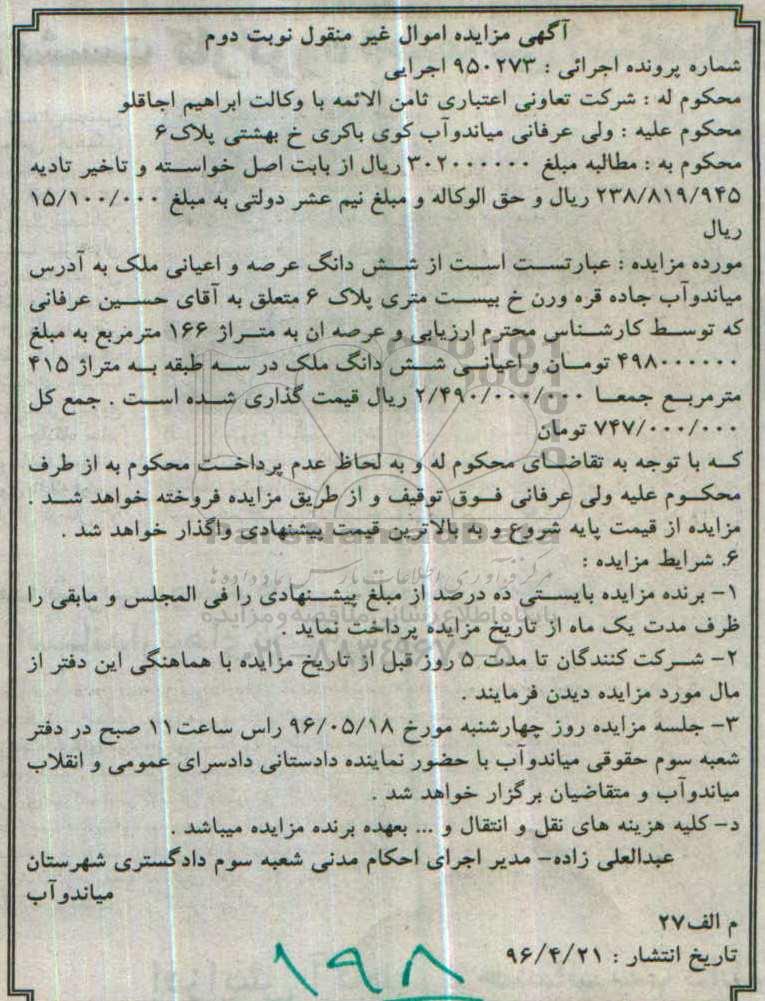 آگهی مزایده اموال غیر منقول نوبت دوم
شماره پرونده اجرائی : ۹۵۰۲۷۳ اجرایی
محکوم له : شرکت تعاونی اعتباری ثامن الائمه با وکالت ابراهیم اجاقلو
محکوم علیه : ولی عرفانی میاندوآب کوی باکری خ بهشتی پلاک۶
محکوم به : مطالبه مبلغ ۳۰۲۰۰۰۰۰۰ ریال از بابت اصل خواسته و تاخیر تادیه
۲۳۸/۸۱۹/۹۴۵ ریال و حق الوکاله و مبلغ نیم عشر دولتی به مبلغ ۱۵/۱۰۰/۰۰۰
ریال
مورده مزایده : عبارتست است از شش دانگ عرصه و اعیانی ملک به آدرس
میاندوآب جاده قره ورن خ بیست متری پلاک ۶ متعلق به آقای حسین عرفانی
که توسط کارشناس محترم ارزیابی و عرصه ان به متراژ ۱۶۶ مترمربع به مبلغ
۴۹۸۰۰۰۰۰۰ تومان و اعیانی شش دانگ ملک در سه طبقه به متراژ ۴۱۵
مترمربع جمعا ۲/۴۹۰/۰۰۰/۰۰۰ ریال قیمت گذاری شده است . جمع کل
۷۴۷/۰۰۰/۰۰۰ تومان
که با توجه به تقاضای محکوم له و به لحاظ عدم پرداخت محکوم به از طرف
محکوم علیه ولی عرفانی فوق توقیف و از طریق مزایده فروخته خواهد شد .
مزایده از قیمت پایه شروع و به بالاترین قیمت پیشنهادی واگذار خواهد شد .
ParsNamadData
۶. شرایط مزایده :
مرکز فرآوری اطلاعات پارس نماد داده ها
۱- برنده مزایده بایستی ده درصد از مبلغ پیشنهادی را فی المجلس و مابقی را
ظرف مدت یک ماه از تاریخ مزایده پرداخت نماید .
۲- شرکت کنندگان تا مدت ۵ روز قبل از تاریخ مزایده با هماهنگی این دفتر از
مال مورد مزایده دیدن فرمایند .
۳- جلسه مزایده روز چهارشنبه مورخ ۹۶/۰۵/۱۸ راس ساعت۱۱ صبح در دفتر
شعبه سوم حقوقی میاندوآب با حضور نماینده دادستانی دادسرای عمومی و انقلاب
میاندوآب و متقاضیان برگزار خواهد شد .
د- کلیه هزینه های نقل و انتقال و ... بعهده برنده مزایده میباشد .
عبدالعلی زاده- مدیر اجرای احکام مدنی شعبه سوم دادگستری شهرستان
میاندوآب
م الف۲۷
تاریخ انتشار : ۹۶/۴/۲۱
۱۹۸